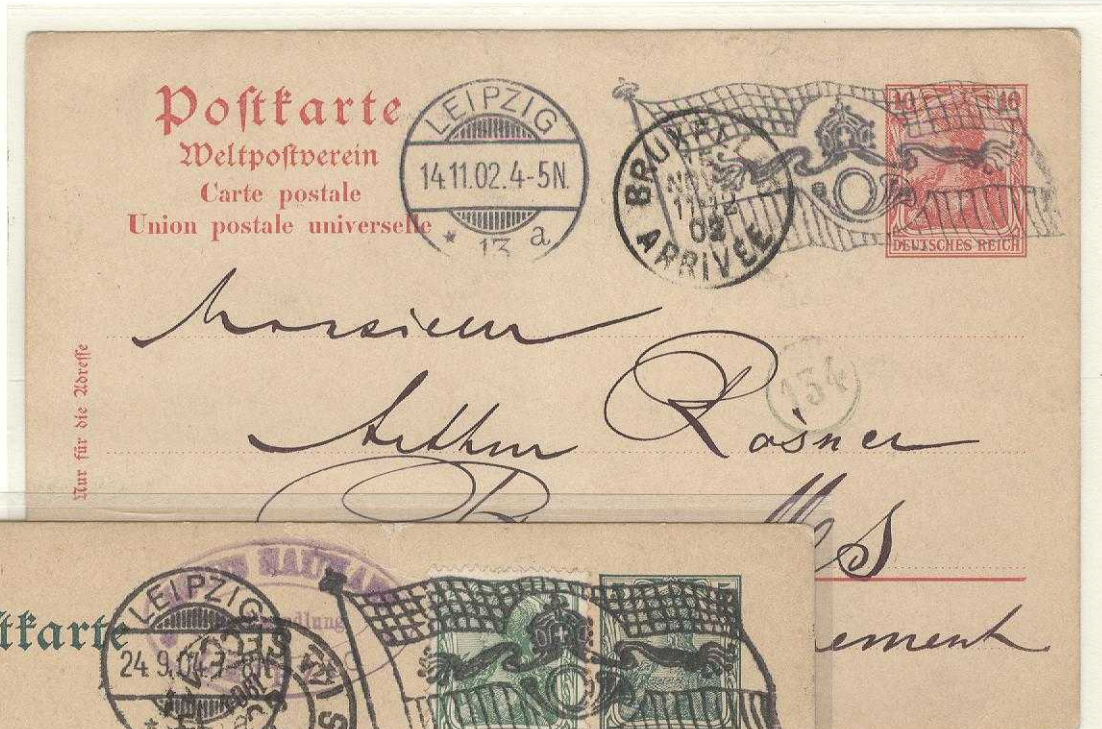 Postkarte
Weltpostverein
Carte postale
Union postale universelle
LEIPZIG
14.11.02.4-5N.
* 13 a
BRUX
15
NOV
11-12
02
ARRIVÉE
10 10
DEUTSCHES REICH
Nur für die Adresse
Monsieur
Arthur Rosner
154
lles
ement
tkarte
LEIPZIG
24.9.04
NAUMA
ndlung